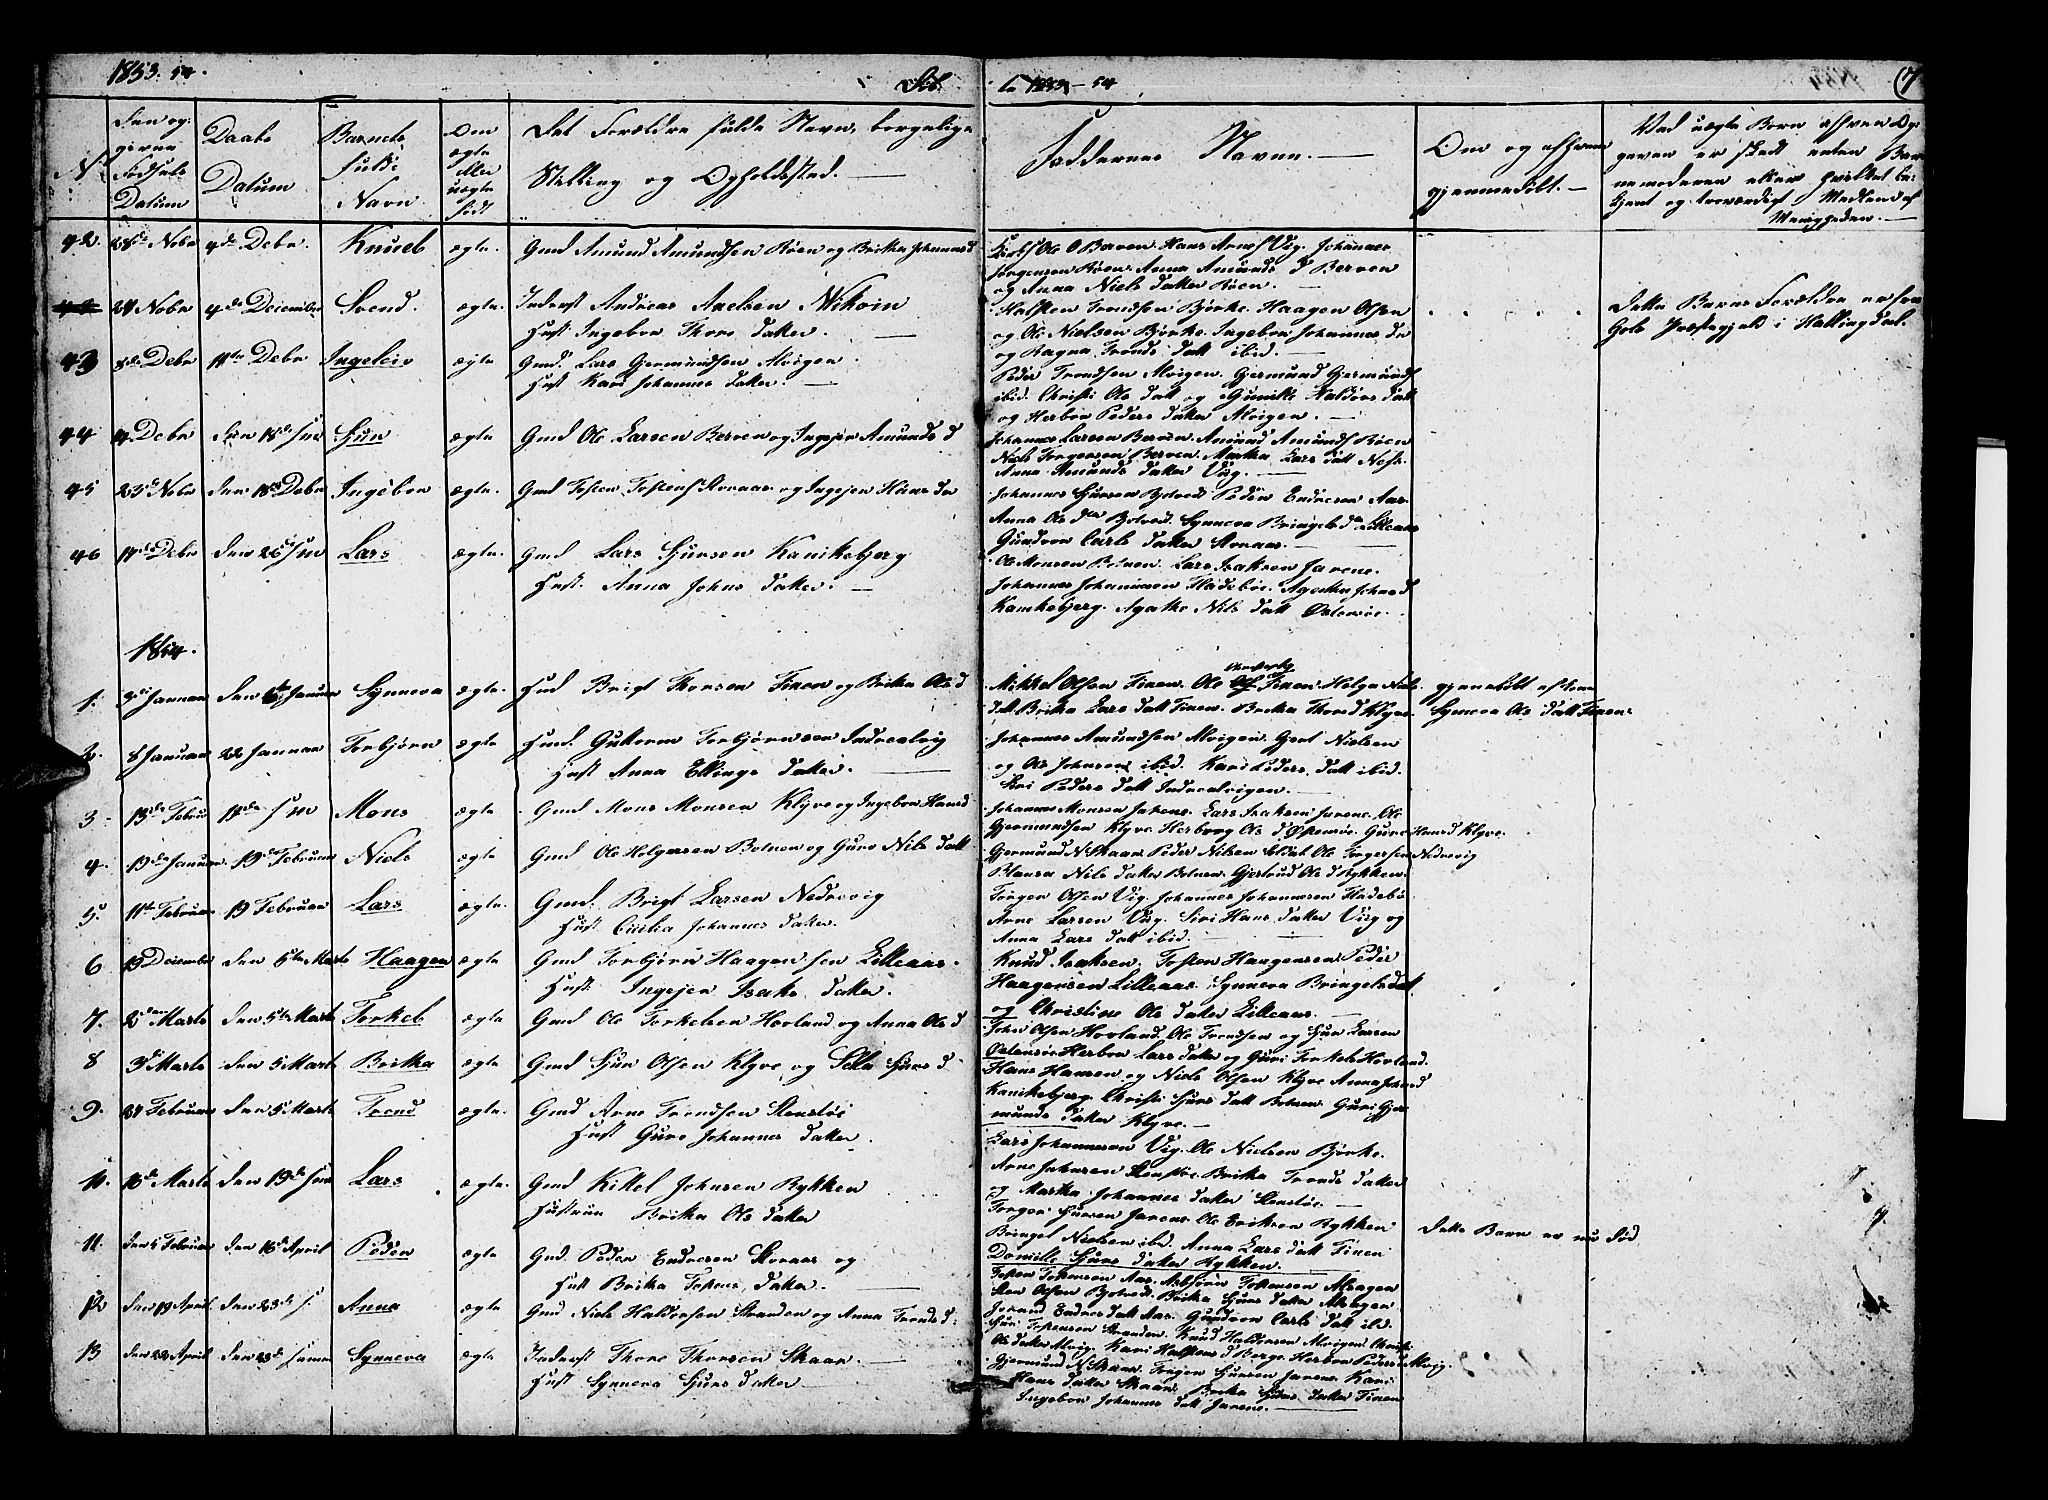 1853. 54.
1853 - 54
7
No
Daabs
Datum
Barnets
fulde
Navn
Om
ægte
eller
uægte
født
Det Forældre fulde Navn, borgelige
Stilling og Opholdssted.
Faddernes Navne.
Om og af hvem
hjemmedøbt.
givne
Fødsels
Datum
42. 28de Nobr 4de Debr. Knud ægte. Gmd Amund Amundsen Röen og Britha Johannesd
Ole O Berven. Hans Arnes Vig. Johannes
Jørgensen Röen. Anna Amunds d Berven
og Anna Niels datter Röen.
24 Nobr 4de December Svend. ægte. Inderst Andreas Axelsen
Hust. Ingebor Thore datter.
Halsten Trondsen Björke. Haagen Olsen
og Ole Nielsen Björke. Ingebor Johannes da
og Ragna Tronds datt ibid.
Dette Barns Forældre er fra
Gols Præstegjeld i Hallingdal.
43 8de Debr 11te Debr Ingeleiv ægte Gmd. Lars Gjermundsen Alvigen
Hust Kari Johannes datter.
Peder Trondsen Alvigen. Gjermund Gjermunds
ibid. Christi Ols datt og Gunilde Haldors datt
og Herbor Peders datter Alvigen.
44 4 Debr den 18de s m Sjur ægte Gmd Ole Larsen Berven og Ingejer Amunds d
Johannes Larsen Berven. Amund Amunds Röen
Niels Torgersen Berven. Martha Lars datt Nes.
Anna Amunds datter Vig.
45 23de Nobr den 18de Debr Ingebor ægte. Gmd Tosten Tostens Storaas og Ingejer Hans da
Johannes Sjursen Botved. Peder Endresen Aas.
Anna Ols da Botved. Synneva Bringels da Lilleaas
Gundvor Carls datter Storaas.
46 17de Debr den 26de s m Lars ægte. Gmd Lars Sjursen Kanikebjerg
Hust. Anna Johns datter.
Ole Monsen Botnen. Lars Isaksen Jarene.
Johannes Johannesen Hadebøe. Agatha Johns d
Kanikebjerg. Agathe Nils datt
1854.
1. 3die Januar den 6te Januar Synneva ægte. Hmd Brigt Thorsen Finen og Britha Ols d
Mikkel Olsen Finen. Ole Finen. Helga Niels
datt. Britha Lars datt Finen. Britha Thors d Klyve
hjemdöbt af
Synneva Ols datt Finen
2. 8 Januar 22 Januar Torbjörn ægte Hmd. Guttorm Torbjörnsen Indrealvig
Hust Anna Ellings datter.
Johannes Amundsen Alvigen. Gjert Nielsen
og Ole Johnsen ibid. Kari Peders datt ibid.
Siri Peders datt Indrealvigen.
3 13de Februar 17de s m Mons ægte Gmd Mons Monsen Klyve og Ingebor Hansd
Johannes Monsen Jarene. Lars Isaksen Jarene. Ole
Gjermundsen Klyve. Herborg Ols d Guro Hans d Klyve.
4. 19de Januar 19de Februar Niels ægte Gmd Ole Helgesen Botnen og Guro Nils datt
Gjermund N Skaar. Peder Nilsen Ole Torgersen Nedrevig
Nils datter Botnen. Gjertrud Ols d Rykken.
5. 11te Februar 19 Februar Lars ægte. Gmd. Brigt Larsen Nedrevig
Hust Cicilia Johannes datter.
Torger Olsen Vig. Johannes Johannesen Hadebö
Arne Larsen Vig. Siri Hans datter Vig og
Anna Lars datt ibid.
6 19 December den 5te Marts Haagen ægte Gmd Torbjörn Haagensen Lilleaas.
Hust. Ingejer Isaks datter.
Knud Isaksen. Tosten Haagensen Peder
Haagensen Lilleaas. Synneva Bringels dat.
og Christine Ols datter Lilleaas.
7. 2den Marts den 5te Marts Torkel ægte Gmd Ole Torkelsen Hovland og Anna Ols d
John Olsen Hovland. Ole Trondsen og Sjur Larsen
Herbor Lars datter og Guri Torkels Hovland.
8 3de Marts den 5 Marts Britha ægte Gmd Sjur Olsen Klyve og Sella Sjurs d
Hans Hansen og Niels Olsen Klyve Anna Johns d
Kanikebjerg. Christi Sjurs datt Botnen. Guri Gjer
munds datter Klyve.
9. 27 Februar den 5. Marts Trond ægte. Gmd Arne Trondsen Stenstöe
Hust Guro Johannes datter.
Lars Johannesen Vig. Ole Nielsen Björke.
Arne Johnsen Stenstöe. Britha Tronds datter
og Martha Johannes datter Stenstöe.
10. 16de Marts den 19de s m Lars ægte. Gmd Kittel Johnsen Rykken
Hustrue Britha Ols datter
Torger Sjursen Jarene. Ole Eriksen Rykken
Bringel Nielsen ibid. Anna Lars datt Finen
Domille Sjurs datter Rykken.
11. den 5 Februar den 16de April Peder ægte Gmd. Peder Endresen Storaas og
Hust Britha Tostens datter.
Tosten Tostensen Aas. Asbjörn Tostensen Alsagen
Sten Olsen Botved. Britha Sjurs datter Alsagen
Jorand Endres datt Aas. Gundvor Carls datt ibid.
Dette Barn er nu Död
12 den 19 April den 23de s. Anna ægte Gmd Niels Haldorsen Stranden og Anna Tronds d.
Sjur Tostensen Stranden. Knud Haldorsen Alvigen. Christi
Ols datter Alvig. Kari Halstens d Berge. Herbor Peders d Alvig.
13 den 22 April den 23de samme Synneva ægte Inderst Thore Thorsen Skaar.
Hust Synneva Sjurs datter
Gjermund N Skaar. Torger Sjursen Jarene. Kari
Hans datter Skaar. Britha Sjurs datter Finen
Ingebor Johannes datt Jarene.